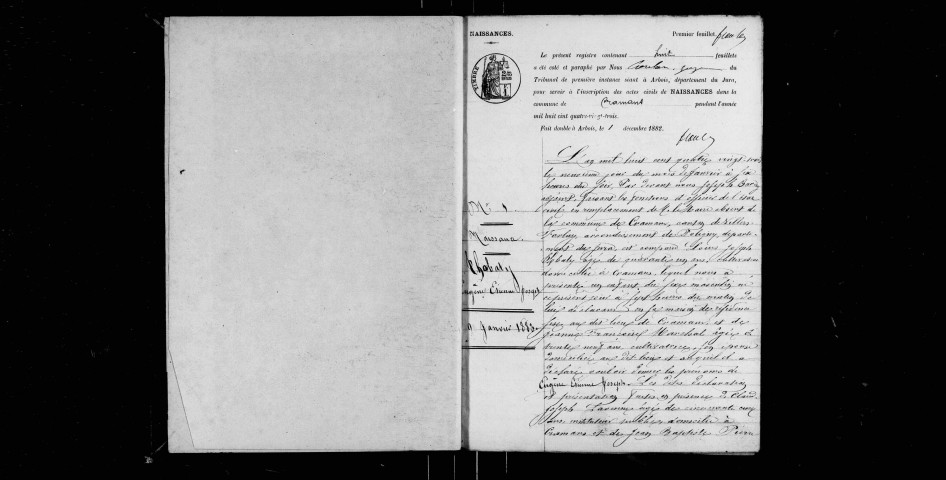 NAISSANCES.
Premier feuillet.
Le présent registre contenant huit feuillets
a été coté et paraphé par Nous juge du
Tribunal de première instance séant à Arbois, département du Jura,
pour servir à l'inscription des actes civils de NAISSANCES dans la
commune de Cramans pendant l'année
mil huit cent quatre-vingt-trois.
Fait double à Arbois, le 1 décembre 1882.
TIMBRE
No 1
Naissance
Thabaly
Eugène Etienne Joseph
9 Janvier 1883
L'an mil huit cent quatre vingt trois
le neuvième jour du mois de Janvier à six
heures du soir, Par devant nous Joseph
adjoint, faisant les fonctions d'officier de l'état
civil en remplacement de M. le Maire absent de
la commune de Cramans, canton de Villers
Farlay, arrondissement de Poligny, départe-
ment du Jura, est comparu Louis Joseph
Thabaly âgé de quarante un ans, cultivateur
domicilié à Cramans, lequel nous a
présenté un enfant du sexe masculin né
ce présent jour à sept heures du matin de
lui déclarant, en sa maison
au dit lieu de Cramans, et de
Jeanne Françoise Maréchal âgée de
trente neuf ans, cultivatrice, son épouse
domiciliée au dit lieu et auquel il a
déclaré vouloir donner les prénoms de
Eugène Etienne Joseph. Les dites déclaration
et présentation faites en présence de Claude
Joseph âgé de cinquante cinq
ans instituteur public domicilié à
Cramans et de Jean Baptiste